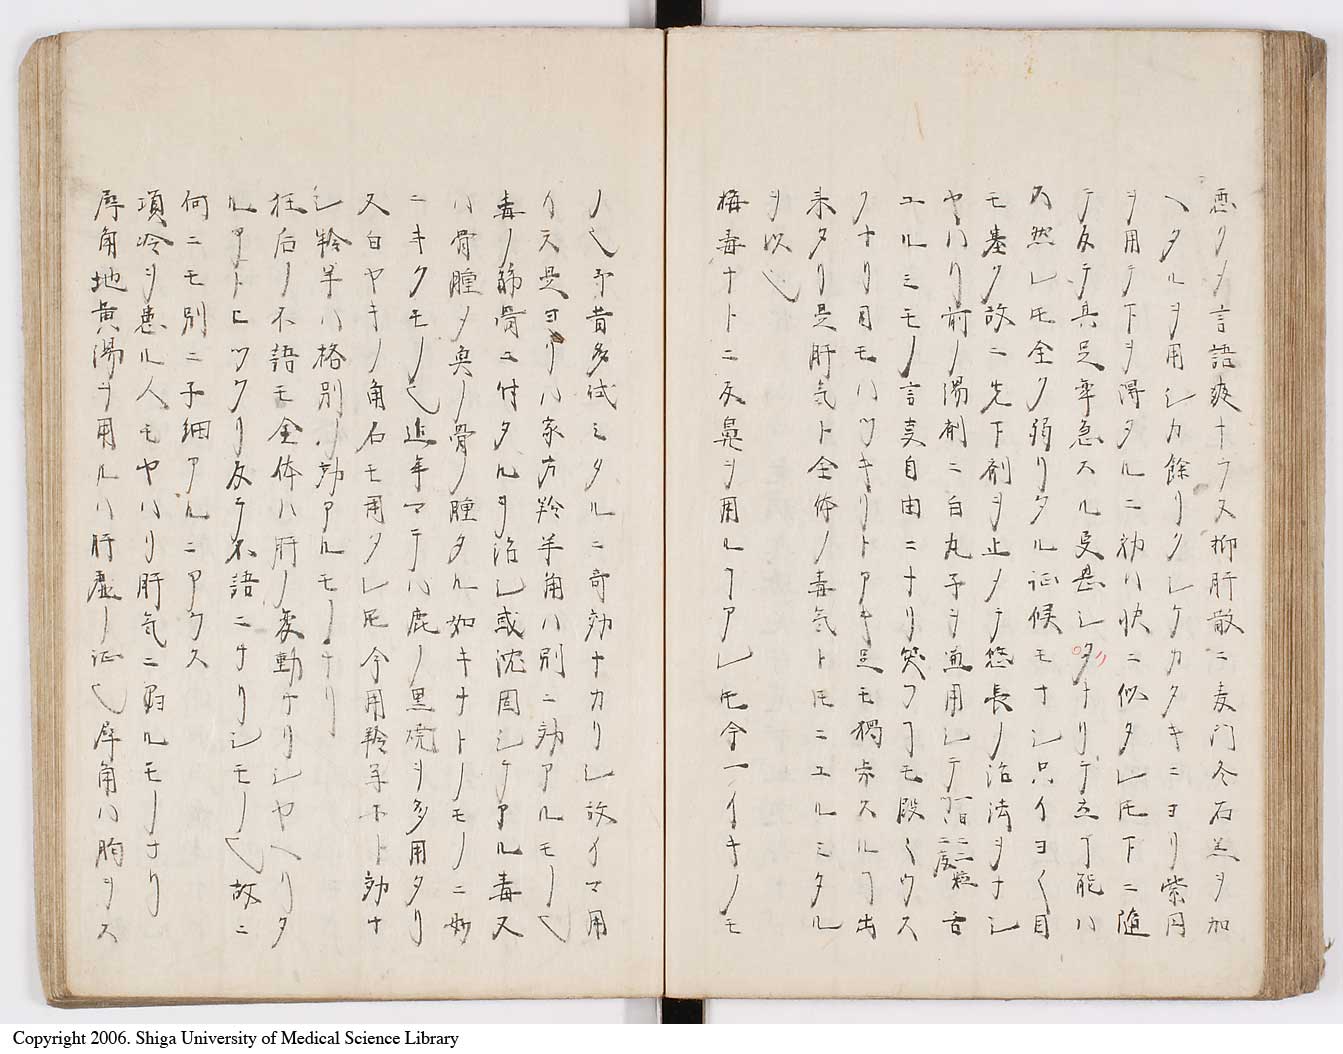 悪クメ言語爽ナラス抑肝散ニ麦門冬石羔ヲ加
ヘタルヲ用シカ餘リクレケカタキニヨリ紫円
ヲ用テ下ヲ得タルニ初ハ快ニ似タレ𪜈下ニ随
テ反テ其足牽急スルヿ甚シタナリテ立ヿ能ハ
ス然レ𪜈全ク弱リタル证候モナシ只イヨ〱目
モ塞ク故ニ先下剤ヲ止メテ悠長ノ治法ヲナシ
ヤハリ前ノ湯剤ニ白丸子ヲ兼用シテ一日ニ二度二粒舌
ユルミモノ言叓自由ニナリ笑フヿモ段〱ウス
クナリ目モハツキリトアキ足モ獨歩スルヿ出
来タリ是肝気ト全体ノ毒気ト𪜈ニユルミタル
ヲ以也
梅毒ナトニ反鼻ヲ用ルヿアレ𪜈今一イキノモ
ノ也予昔多試ミタルニ奇効ナカリシ故イマ用
イス是ヨリハ家方羚羊角ハ別ニ効アルモノ也
毒ノ筋骨ニ付タルヲ治シ或沈固シケアル毒又
ハ骨腫メ魚ノ骨ノ腫タル如キナトノモノニ妙
ニキクモノ也近年マテハ鹿ノ黒焼ヲ多用タリ
又白ヤキノ角石モ用タレ𪜈今用羚羊ホト効ナ
シ羚羊ハ格別ノ効アルモノナリ
狂后ノ不語モ全体ハ肝ノ変動ナリシヤヘリタ
ルアトヒツクリ反テ不語ニナリシモノ也故ニ
何ニモ別ニ子細アルニアラス
項冷ヲ患ル人モヤハリ肝気ニ因ルモノナリ
犀角地黄湯ヲ用ルハ肝虚ノ证也犀角ハ胸ヲス
Copyright 2006. Shiga University of Medical Science Library